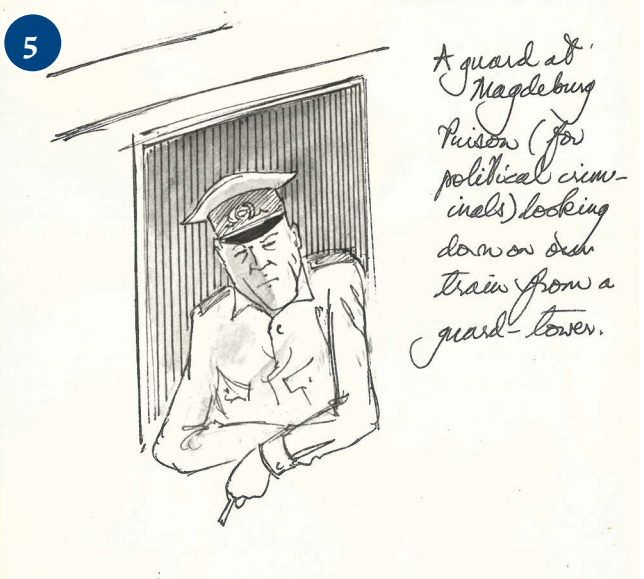 5
A guard at
Magdeburg
Prison (for
political crim-
inals) looking
down on our
train from a
guard-tower.